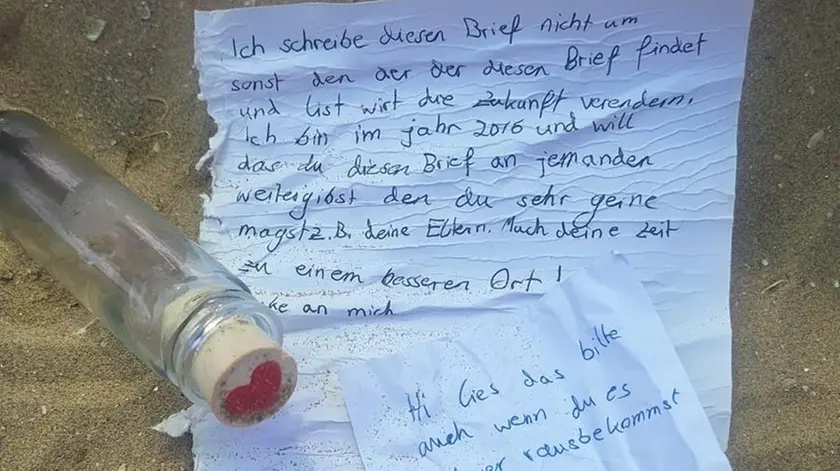 Ich schreibe diesen Brief nicht um
sonst den der der diesen Brief findet
und list wirt die Zukunft verendern.
Ich bin im jahr 2016 und will
das du diesen Brief an jemanden
weitergibst den du sehr gerne
magst z.B. deine Eltern. Mach deine Zeit
zu einem besseren Ort!
ke an mich
Hi lies das bitte
auch wenn du es
er rausbekommst